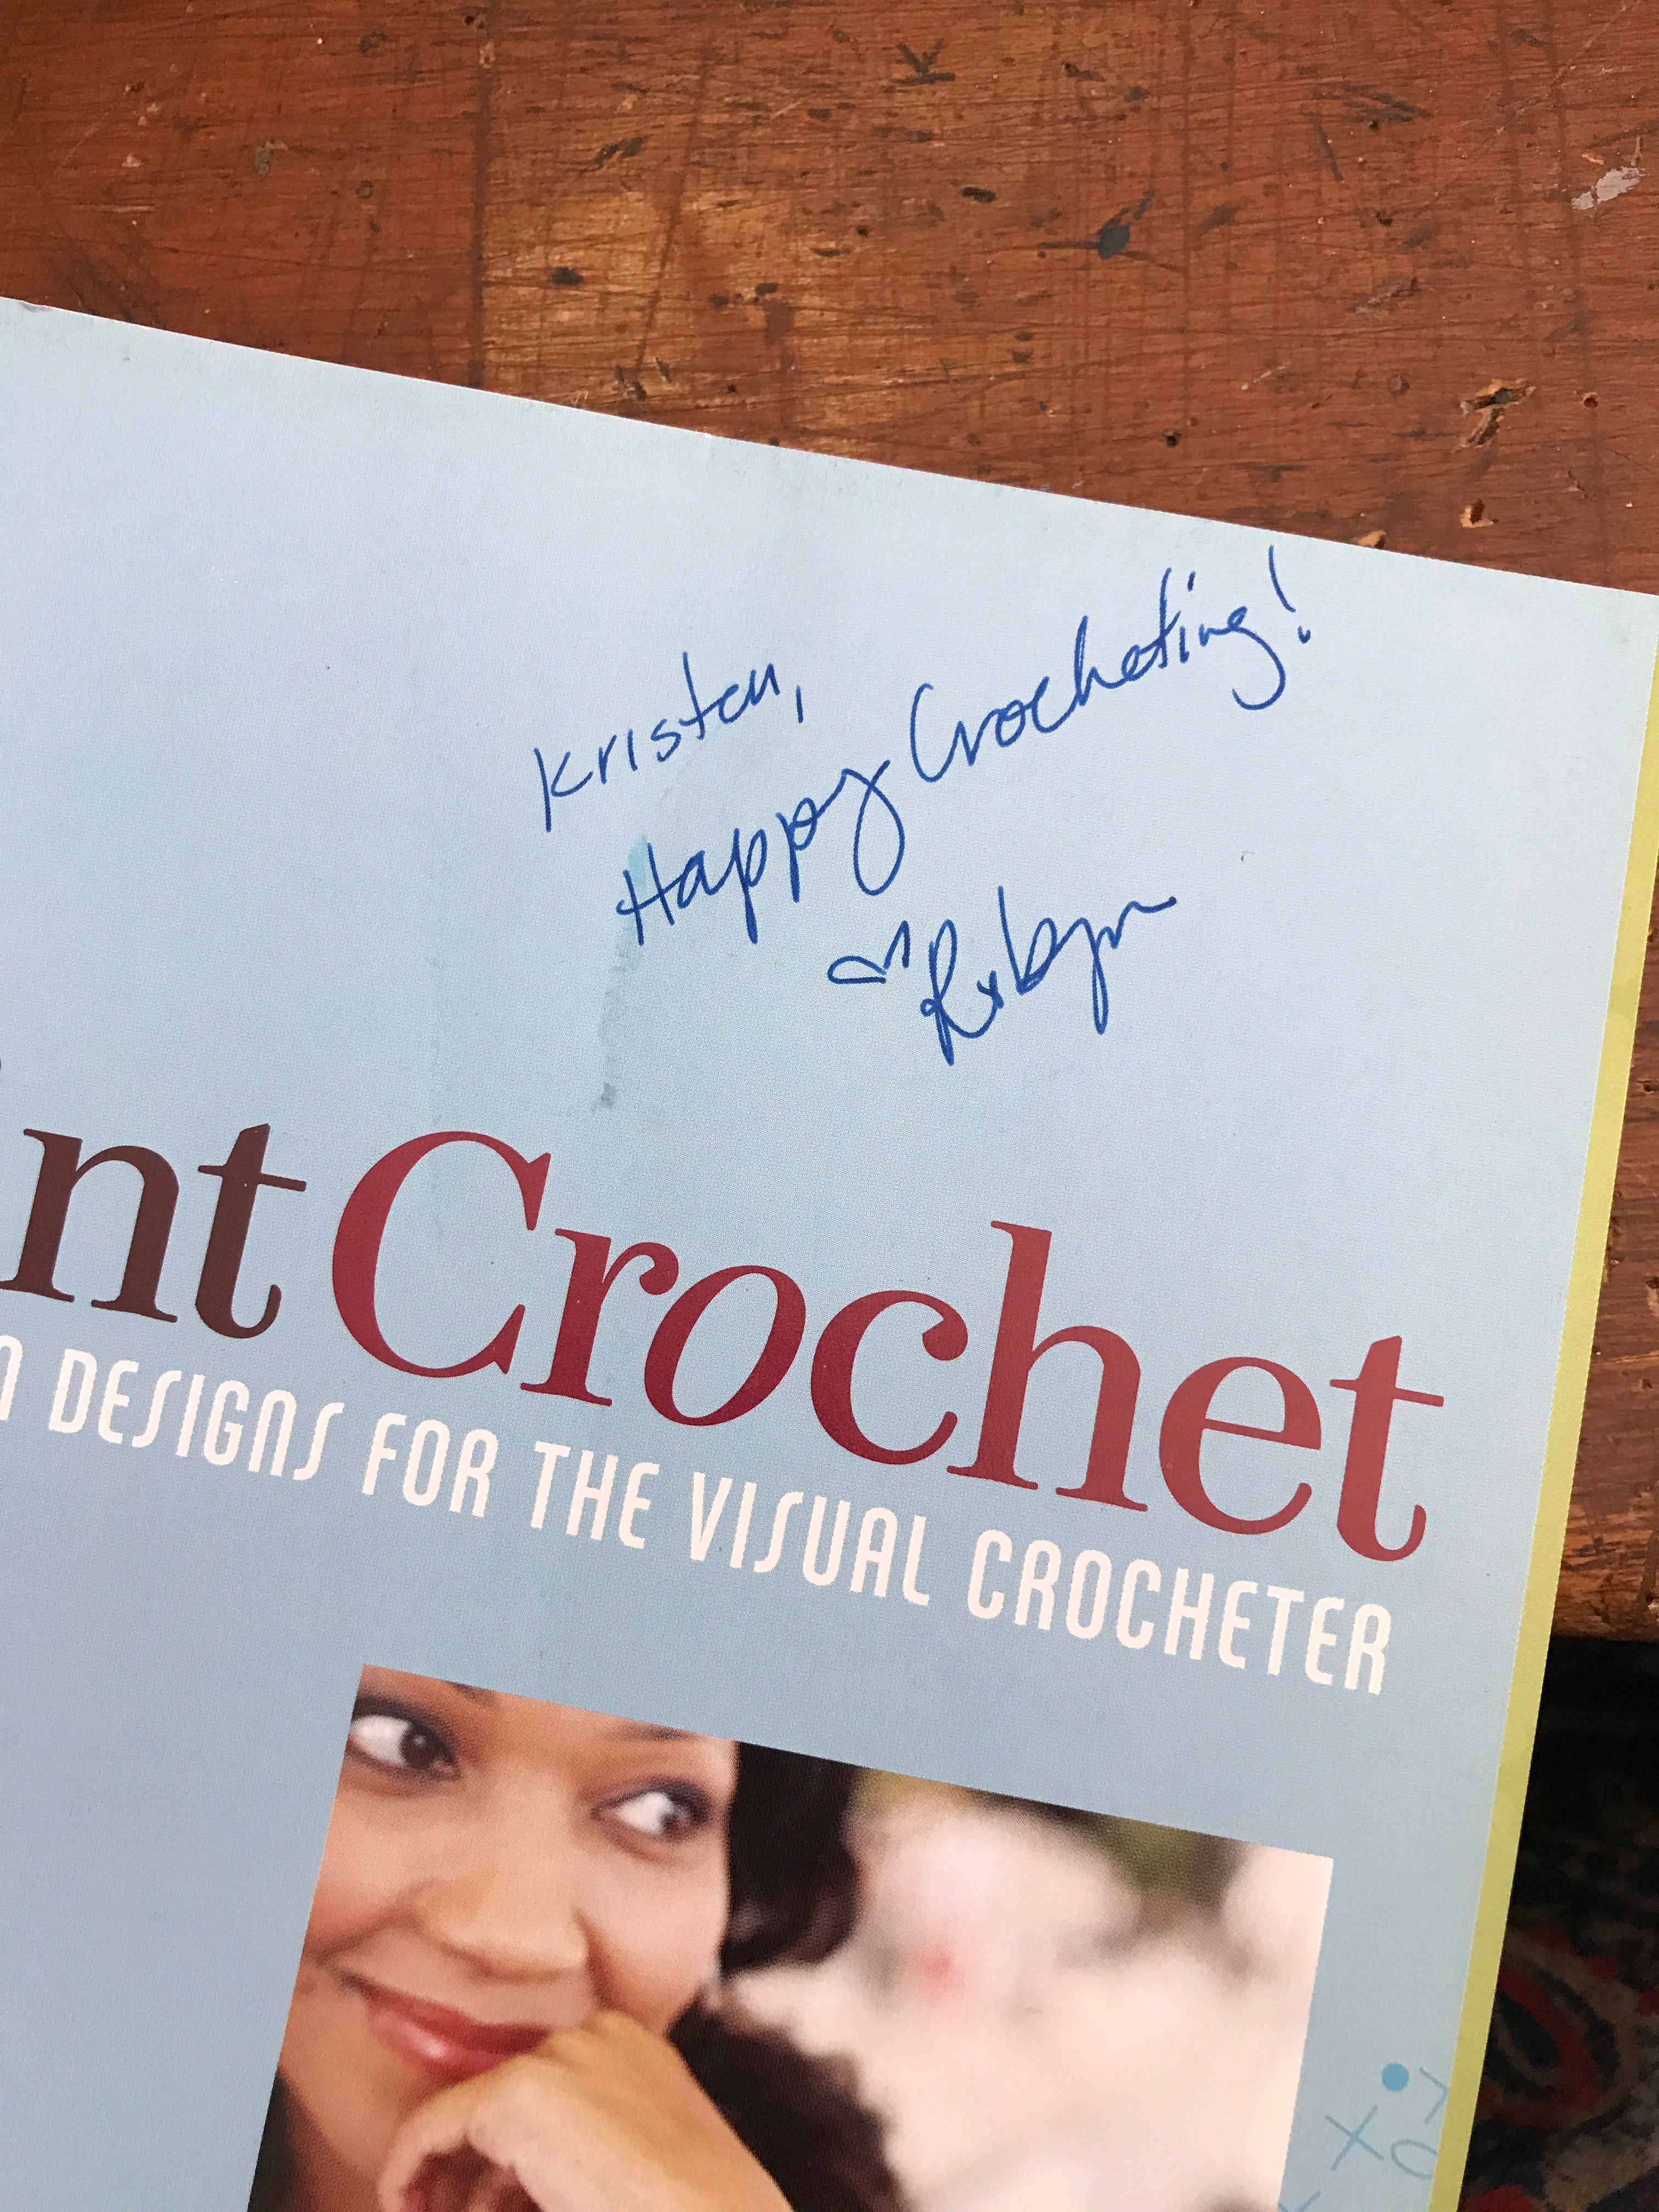 Kristen,
Happy Crocheting!
♡Robyn
nt Crochet
DESIGNS FOR THE VISUAL CROCHETER